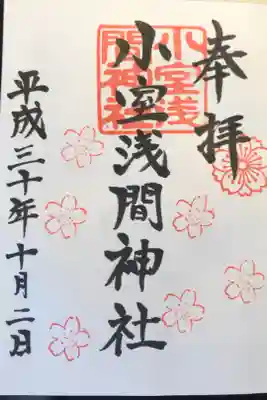 奉拝
小室浅間神社
小室浅
間神社
平成三十年十月二日